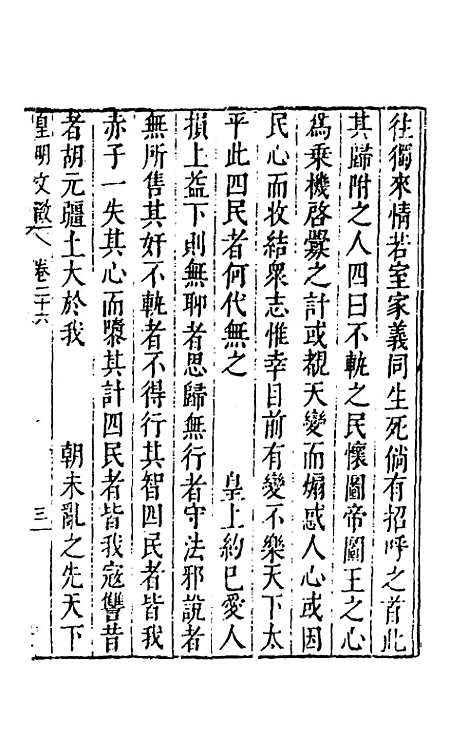 往獨來情若室家義同生死倘有招呼之首此
其歸附之人四曰不軌之民懷圖帝圖王之心
爲乘機啓釁之計或觀天變而煽惑人心或因
民心而收結衆志惟幸目前有變不樂天下太
平此四民者何代無之 皇上約已愛人
損上益下則無聊者思歸無行者守法邪說者
無所售其奸不軌者不得行其智四民者皆我
赤子一失其心而隳其計四民者皆我寇讐昔
者胡元疆土大於我 朝未亂之先天下
皇明文徵 卷二十六 三